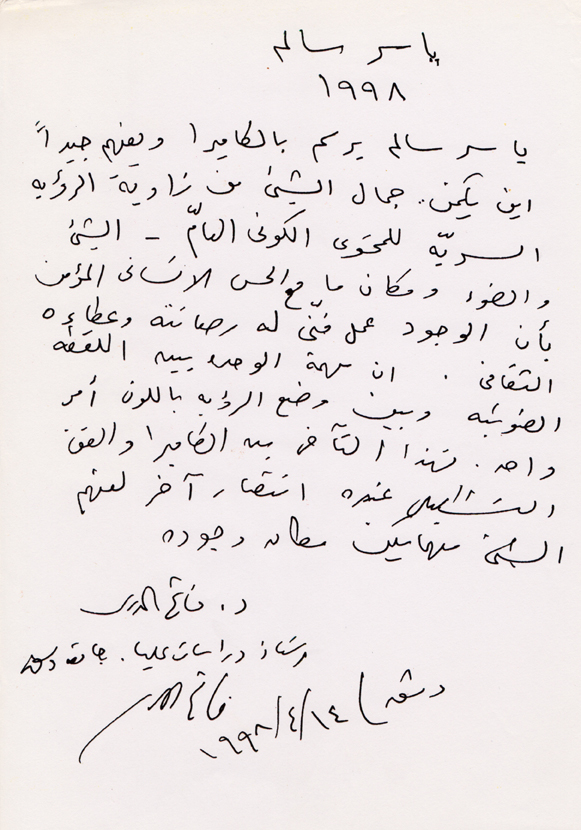 ياسر سالم
١٩٩٨
ياسر سالم يرسم بالكاميرا ويفهم جيداً
اين يكمن جمال الشيئ من زاوية الرؤيه
السريّه للمحتوى الكوني العامّ - الشيئ
والضوء ومكان ما مع الحس الانساني المؤمن
بأن الوجود عمل فنّي له رصانته وعطاءه
الثقافي . ان مهمة الوحده بين اللقطه
الضوئيه وبين وضع الرؤيه باللون أمر
واحد. فهذا التآخي بين الكاميرا والفن
التشكيلي عنده انتصار آخر لفهم
الشيئ مهما يكن مكان وجوده
د. فاتح المدرس
استاذ دراسات عليا. جامعة دمشق
دمشق ١٩٩٨/٤/١٤
فاتح المدرس